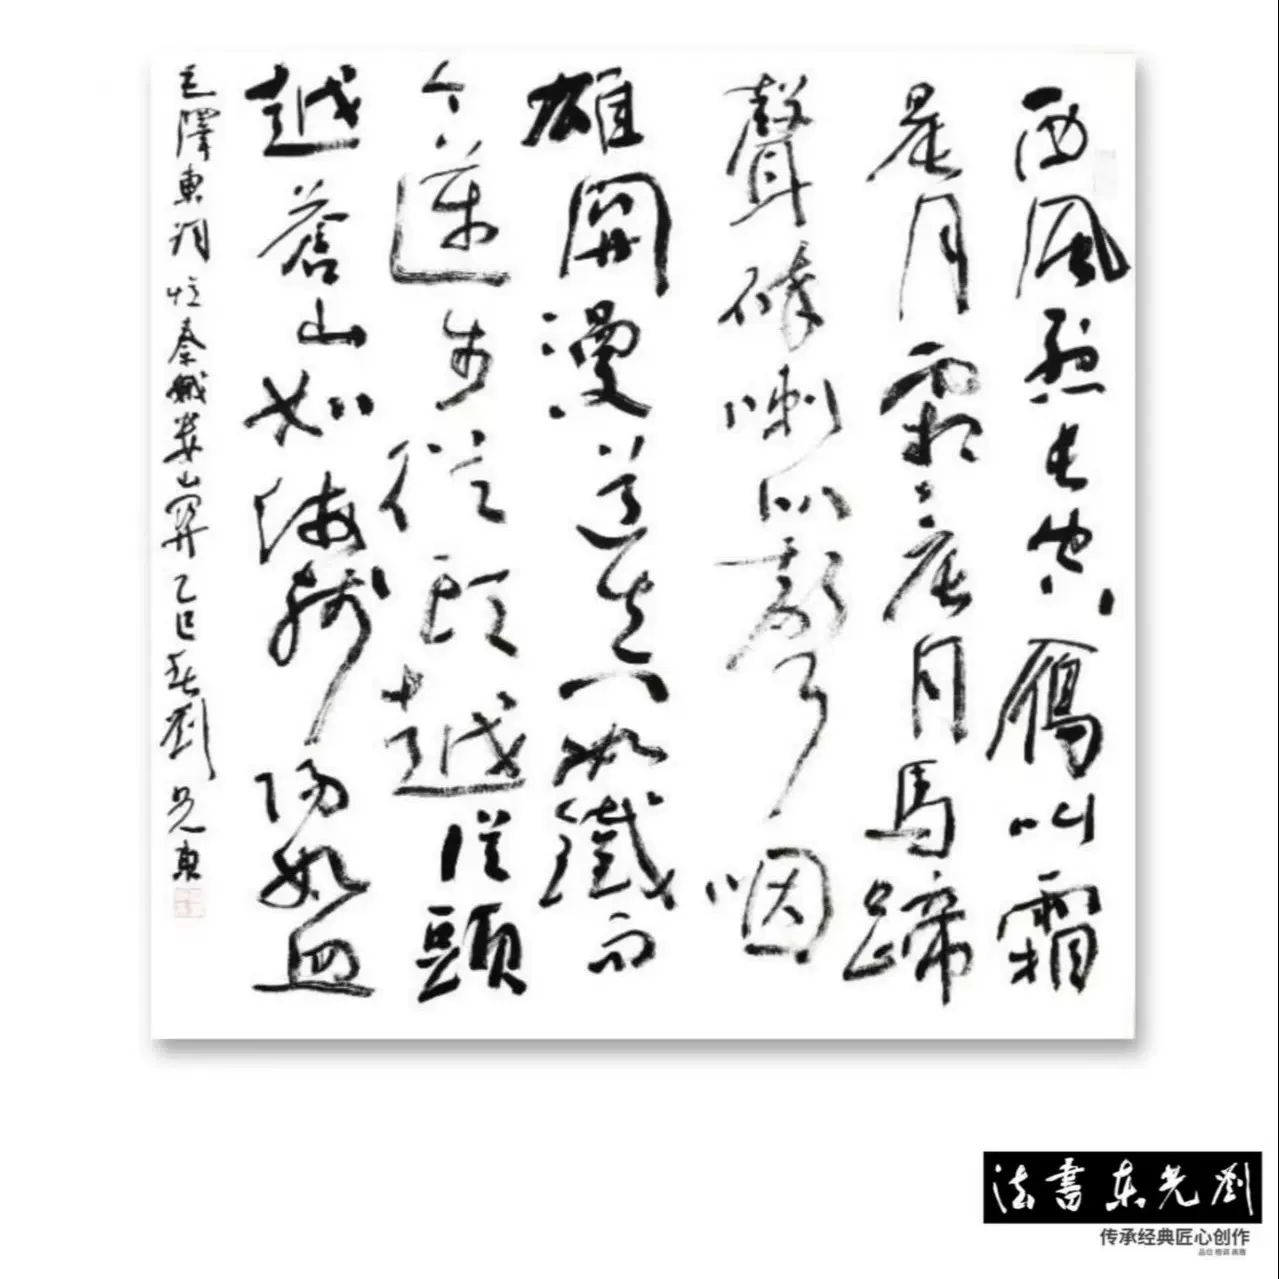 西風烈長空鴈叫霜
晨月霜晨月馬蹄
聲碎喇叭聲咽
雄關漫道真如鐵而
今邁步從頭越從頭
越蒼山如海殘陽如血
毛澤東詞憶秦娥婁山關乙巳春劉光東
劉光东書法
传承经典匠心创作